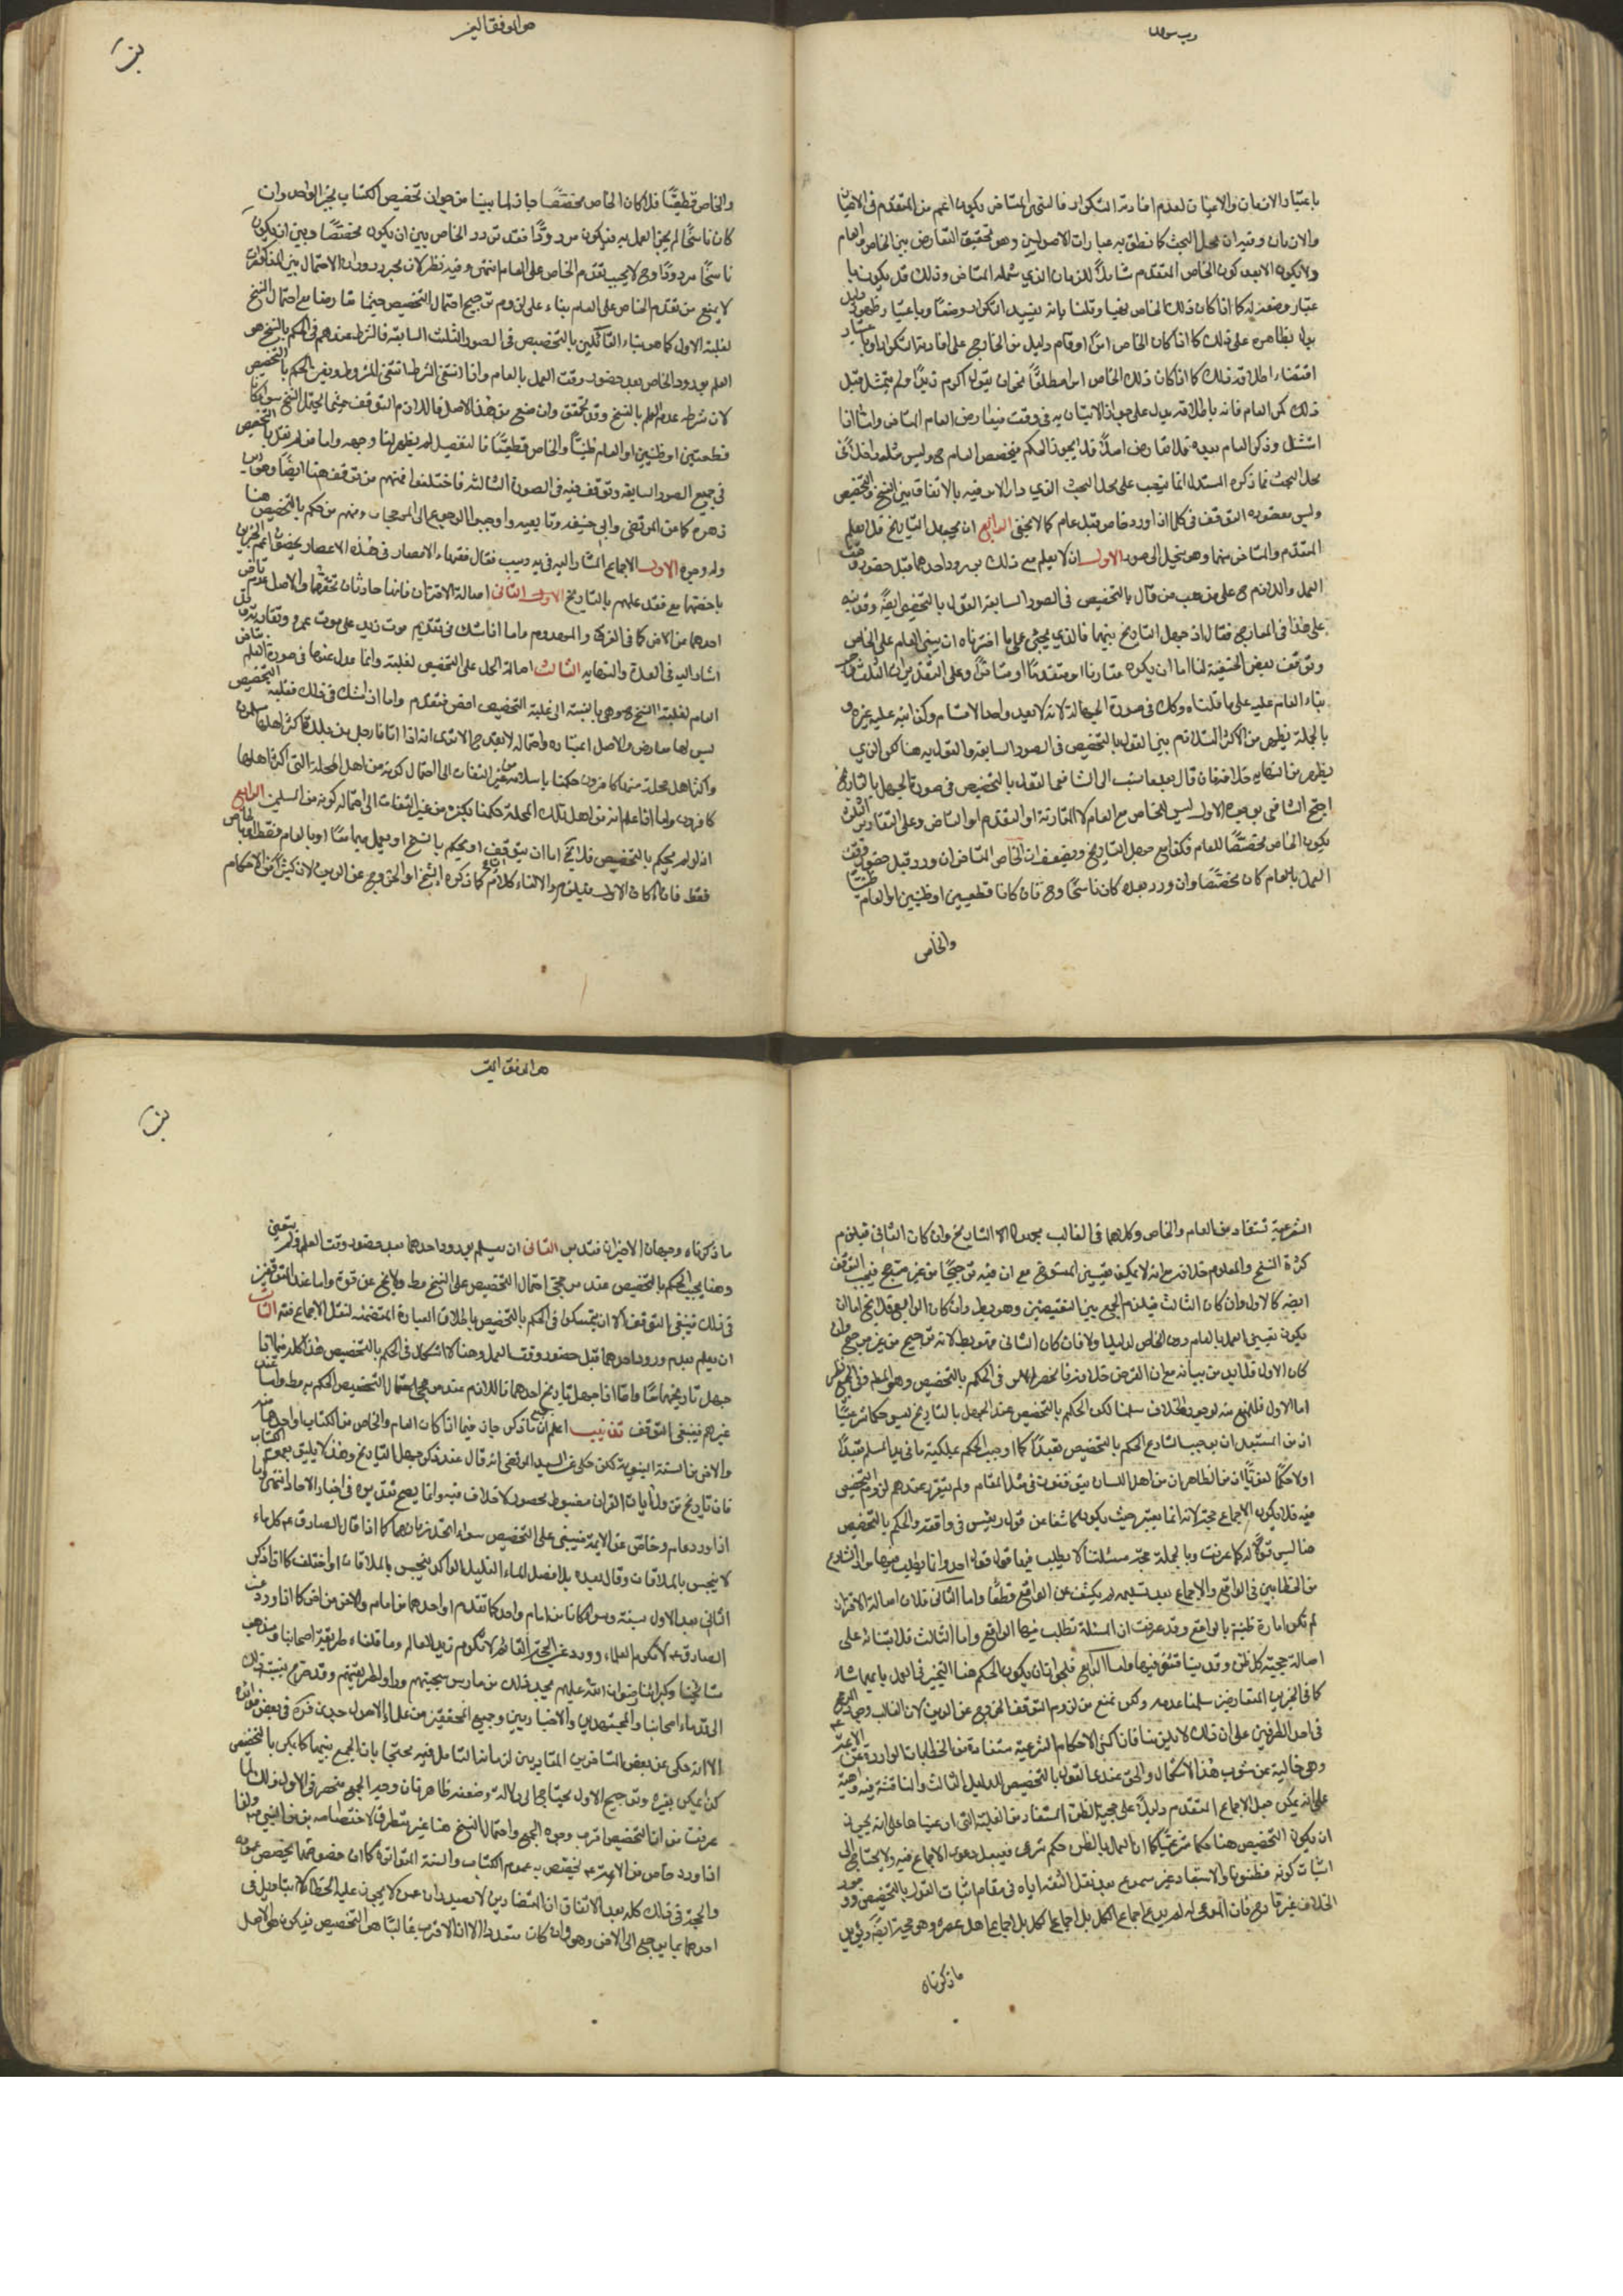 باعتبار الازمان والاحيان لعدم افادته التكرار فالنهى المتاخر يكون اعم من المتقدم فى الاحيان
والازمان وفيه ان محل البحث كما نطق به عبارات الاصوليين وهو تحقيق التعارض بين الخاص والعام
ولا يكون الا بعد كون الخاص المتقدم شاملاً للزمان الذي شمله المتاخر وذلك قد يكون با
عتبار وضعه له كما اذا كان ذلك الخاص نهيا وقلنا بانه يفيد التكرار وضعًا وباعتبار ظهور
يدل بظاهره على ذلك كما اذا كان الخاص امرًا وقام دليل من الخارج على افادته التكرار او با
اقتضاء اطلاقه ذلك كما اذا كان ذلك الخاص امرا مطلقًا نحو ان يقول اكرم زيدًا ولم يتمثل قبل
ذلك كر العام فانه باطلاقه يدل على جواز الاتيان به فى وقت فيعارض العام المتاخر واما اذا
امتثل وذكر العام بعده فلا تعارض اصلاً فلا يجوز الحكم بتخصيص العام ح وليس مثله داخلاً فى
محل البحث فما ذكره المستدل انما يتجه على محل البحث الذي دار الامر فيه بالاتفاق بين النسخ والتخصيص
وليس مقصوده التوقف فى كل ما اذا ورد خاص قبل عام كما لا يخفى الرابع ان يجهل التاريخ فلا يعلم
المتقدم والمتاخر منهما وهو ينحل الى صور الاولى ان لا يعلم مع ذلك بورود احدهما قبل حضور وقت
العمل واللازم ح على مذهب من قال بالتخصيص فى الصور السابقة القول بالتخصيص ايضًا وقد نبه
على هذا فى المعارج فقال اذ جهل التاريخ بينهما فالذي يجئ على ما اخترناه ان يبنى العام على الخاص
وتوقف بعض الحنفية لنا اما ان يكون مقارنا او متقدمًا او متاخرًا وعلى التقديرات الثلث يجب
بناء العام عليه على ما قلناه وكك فى صورة الجهالة لانه لا يعدو احد الاقسام وكذا نبه عليه غيره و
بالجملة يظهر من الاكثر التلازم بين القول بالتخصيص فى الصور السابقة والقول به هنا لكن الذي
يظهر من النهاية خلافه فان قال بعد ما نسب الى الشافعى القول بالتخصيص فى صورة الجهل بالتاريخ
احتج الشافعى بوجوه الاول ليس للخاص مع العام الا المقارنة او التقدم او التاخر وعلى التقادير الثلثة
يكون الخاص مخصصًا للعام فكذا مع جهل التاريخ ويضعف ان الخاص المتاخر ان ورد قبل حضور وقت
العمل بالعام كان مخصصًا وان ورد بعده كان ناسخًا وح فان كانا قطعيين او ظنيين او العام ظنيًا
والخاص
هو الموفق المعز
والخاص قطعيًا فلو كان الخاص مخصصًا جاز لما بينا من جواز تخصيص الكتاب بخبر الواحد وان
كان ناسخًا لم يجز العمل به فيكون مردودًا فقد تردد الخاص بين ان يكون مخصصًا وبين ان يكون
ناسخًا مردودًا وح لا يجب تقدم الخاص على العام انتهى وفيه نظر لان مجرد دوران الاحتمال بين المذكورين
لا يمنع من تقدم الخاص على العام بناء على لزوم ترجيح احتمال التخصيص حيثما تعارضا مع احتمال النسخ
لغلبة الاول كما هو بناء القائلين بالتخصيص فى الصور الثلث السابقة فالشرط عندهم فى الحكم بالنسخ هو
العلم بورود الخاص بعد حضور وقت العمل بالعام واذا انتفى الشرط انتفى المشروط وبقى الحكم بالتخصيص
لان شرطه عدم العلم بالنسخ وقد تحقق وان منع من هذا الاصل فاللازم التوقف حيثما يحتمل النسخ سواء كانا
قطعيين او ظنيين او العام ظنيًا والخاص قطعيًا فالتفصيل لم يظهر لنا وجهه واما من لم يقل بالتخصيص
فى جميع الصور السابقة وتوقف فيه فى الصورة الثالثة فاختلفوا فمنهم من توقف هنا ايضًا وهو ابن
زهرة كما عن المرتضى وابى حنيفة وتابعيه واوجبوا الرجوع الى المرجحات ومنهم من حكم بالتخصيص هنا
وله وجوه الاول الاجماع المشار اليه فى يه ويب فقال فقهاء الامصار فى هذه الاعصار يخصون اعم الخبرين
باخصهما مع فقد علمهم بالتاريخ الثانى اصالة الاقتران فانهما حادثان تحققهما والاصل عدم تاخر
احدهما من الاخر كما فى الغرقى والمهدوم واما اذا شك فى تقديم موت زيد على موت عمرو وتقارنه
اشار اليه فى العدة والنهايه الثالث اصالة الحمل على التخصيص لغلبته وانما عدل عنها فى صورة العلم
العام لغلبة النسخ ح وهى بالنسبة الى غلبة التخصيص اخص فتقدم واما اذا شك فى ذلك فغلبة التخصيص
ليس لها معارض والاصل اعتباره واحتماله لا يقدح الا ترى انه اذا اتانا رجل من بلدة اكثر اهلها مسلمون
واكثر اهل محلة منها كافرون حكمنا باسلامه من غير التفات الى احتمال كونه من اهل المحلة التى اكثر اهلها
كافرون واما اذا علم انه من اهل تلك المحلة حكمنا بكفره من غير التفات الى احتمال كونه من المسلمين الرابع
انه لو لم يحكم بالتخصيص فلا يخ اما ان يتوقف او يحكم بالنسخ او يعمل بهما معًا او بالعام فقط او بالخاص
فقط فان كان الاول فيلزم الالغاء كلام الشارع كما ذكره الشيخ او الخروج عن الدين لان كثيرًا من الاحكام
الشرعية تستفاد من العام والخاص وكلاهما فى الغالب مجهولا التاريخ وان كان الثانى فيلزم
كثرة النسخ والمعلوم خلافه مع انه لا يمكن تعيين المنسوخ مع ان فيه ترجيحًا من غير مرجح فيجب التوقف
ايضه كالاول وان كان الثالث فيلزم الجمع بين النقيضين وهو بط وان كان الرابع فلا يخ اما ان
يكون تعيين العمل بالعام دون الخاص لدليل اولا فان كان الثانى فهو بط لانه ترجيح من غير مرجح وان
كان الاول فلا بد من بيانه مع ان الفرض خلافه فانحصر الامر فى الحكم بالتخصيص وهو المط وفى الجميع نظر
اما الاول فللمنع منه لوجود الخلاف سلمنا لكن الحكم بالتخصيص عند الجهل بالتاريخ ليس حكما شرعيًا
اذ من المستبعد ان يوجب الشارع الحكم بالتخصيص تعبدًا كما اوجب الحكم بملكية ما فى يد المسلم تعبدًا
اولا حكمًا لغويًا اذ من الظاهر ان من اهل اللسان يتوقفون فى مثل المقام ولم يتقرر عندهم لزوم التخصيص
فيه فلا يكون الاجماع حجة لانه انما يعتبر حيث يكون كاشفا عن قول رئيس فى واقعة والحكم بالتخصيص
هنا ليس قولاً له كما عرفت وبالجملة مسئلتنا لا يطلب فيها قول فقيه احد وانما يطلب فيها مراد الشارع
من الخطابين فى الواقع والاجماع بعد تسليمه لم يكشف عن الواقع قطعًا واما الثانى فلان اصالة الاقتران
لم تكن امارة ظنية بالواقع وقد عرفت ان المسئلة تطلب فيها الواقع واما الثالث فلابتنائه على
اصالة حجية كل ظن وقد بينا قلتنا فيها واما الرابع فلجواز ان يكون الحكم هنا التخيير فى العمل بايهما شاء
كما فى الخبرين المتعارضين سلمنا عدمه ولكن نمنع من لزوم التوقف الخروج عن الدين لان الغالب وجود المرجح
فى احد الطرفين على ان ذلك لا يلزمنا فان اكثر الاحكام الشرعية مستفادة من الخطابات الواردة عن الائمة ع
وهى خالية عن شوب هذا الاشكال والحق عندي القول بالتخصيص للدليل الثالث والمناقشة فيه واهية
على انه يمكن جعل الاجماع المتقدم دليلاً على حجية الظن المستفاد من الغلبة التى ادعيناها على انه يجوز
ان يكون التخصيص هنا حكما شرعيًا كما ان العمل بالظن حكم شرعى فيقبل دعوى الاجماع فيه ولا يحتاج الى
اثبات كونه مظنونا والاستبعاد غير مسموع بعد نقل الثقة اياه فى مقام اثبات القول بالتخصيص ووجود
الخلاف غير قادح فان المدعى له لم يدع اجماع الكل بل اجماع اهل عصره وهو حجة ايضًا ويؤيد
ما ذكرناه
هو الموفق المعز
ما ذكرناه وجهان الاخيران فتدبر الثانى ان يعلم بورود احدهما بعد حضور وقت العمل ولم يتعين
وهنا يجب الحكم بالتخصيص عند مرجحى احتمال التخصيص على النسخ مط ولا يخ عن قوة واما عند المتوقفين
فى ذلك فينبغى التوقف الا ان يتمسك فى الحكم بالتخصيص باطلاق العبارة المتضمنه لنقل الاجماع فته الثالث
ان يعلم بعدم ورود احدهما قبل حضور وقت العمل وهنا لا اشكال فى الحكم بالتخصيص هذا كله فيما اذا
جهل تاريخهما معًا واما اذا جهل تاريخ احدهما فاللازم عند مرجحى احتمال التخصيص الحكم به مط واما عند
غيرهم فينبغى التوقف تذنيب اعلم ان جميع ما ذكر جار فيما اذا كان العام والخاص من الكتاب او احدهما منه
والاخر من السنة النبوية لكن حكى عن السيد المرتضى انه قال عند ذكر جهل التاريخ وهذا لا يليق بعموم الكتاب
فان تاريخ نزول آيات القران مضبوط محصور لا خلاف فيه وانما يصح تقديره فى اخبار الاحاد انتهى واما
اذا ورد عام وخاص عن الائمة فيبنى على التخصيص سواء اتحد زمانهما كما اذا قال الصادق ع كل ماء
لا ينجس بالملاقات وقال بعده بلا فصل الماء القليل الراكد ينجس بالملاقات او اختلف كما اذا ذكر
الثانى بعد الاول بسنة وسواء كانا من امام واحد كما تقدم او احدهما من امام والاخر من اخر كما اذا ورد عن
الصادق ع اكرم العلماء وورد عن الحجة القائم لا تكرم زيد العالم وما قلناه طريقة اصحابنا ومذهب
مشايخنا وكبرائنا رضوان الله عليهم يجد ذلك من مارس سجيتهم وداول طريقتهم وقد صرح بنسبة ذلك
الى قدماء اصحابنا والمجتهدين والاخباريين وجميع المحققين من علماء الاصول جدى قدس سره فى بعض فوائده
الا انه حكى عن بعض المتاخرين المقاربين لزماننا التامل فيه محتجا بان الجمع بينهما كما يمكن بالتخصيص
كذا يمكن بغيره وترجيح الاول يحتاج الى دلالة وضعفه ظاهر فان وجه الجمع منحصر فى الاول وذلك لما
عرفت من ان التخصيص اقرب وجوه الجمع واحتمال النسخ هنا غير متطرق لاختصاصه بزمن النبى ص ولهذا
اذا ورد خاص من الائمة ع يخصص به عموم الكتاب والسنة المتواترة كما ان خصوصهما يخصص عمومه
والحجة فى ذلك كله بعد الاتفاق ان المتضادين لا يصيدان عمن لا يجوز عليه الخطا الا بتاويل فى
احدهما بما يرجع الى الاخر وهو وان كان متعددا الا ان الاقرب غالبًا هو التخصيص فيكون هو الاصل